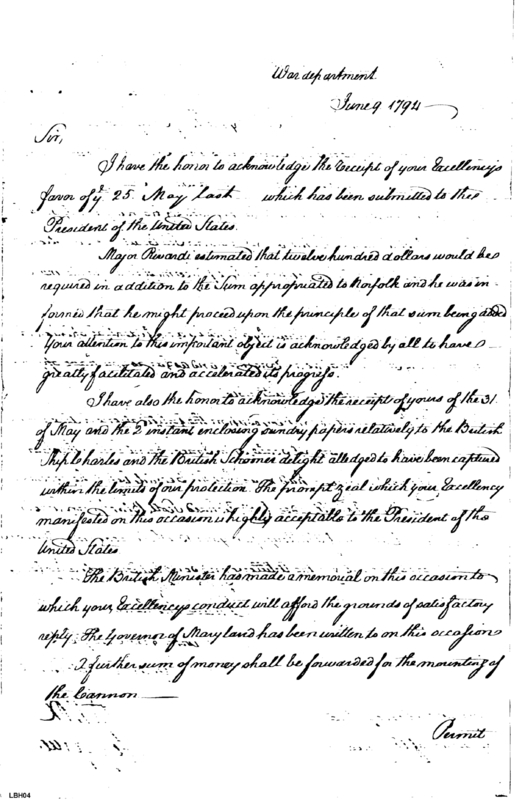 War department
June 9 1794
Sir,
I have the honor to acknowledge the receipt of your Excellency's
favor of ye 25 May last which has been submitted to the
President of the United States.
Major Rivardi estimated that twelve hundred dollars would be
required in addition to the Sum appropriated to Norfolk and he was in-
formed that he might proceed upon the principle of that sum being added
Your attention to this important object is acknowledged by all to have
greatly facilitated and accelerated its progress.
I have also the honor to acknowledge the receipt of yours of the 31
of May and the 2 instant inclosing sundry papers relatively to the British
Ship Charles and the British Schooner delight alledged to have been captured
within the limits of our protection. The prompt zeal which your Excellency
manifested on this occasion is highly acceptable to the President of the
United States
The British Minister has made a memorial on this occasion to
which your Excellency's conduct will afford the grounds of satisfactory
reply. The Governor of Maryland has been written to on this occasion
A further sum of money shall be forwarded for the mounting of
the Cannon
Permit
LBH04